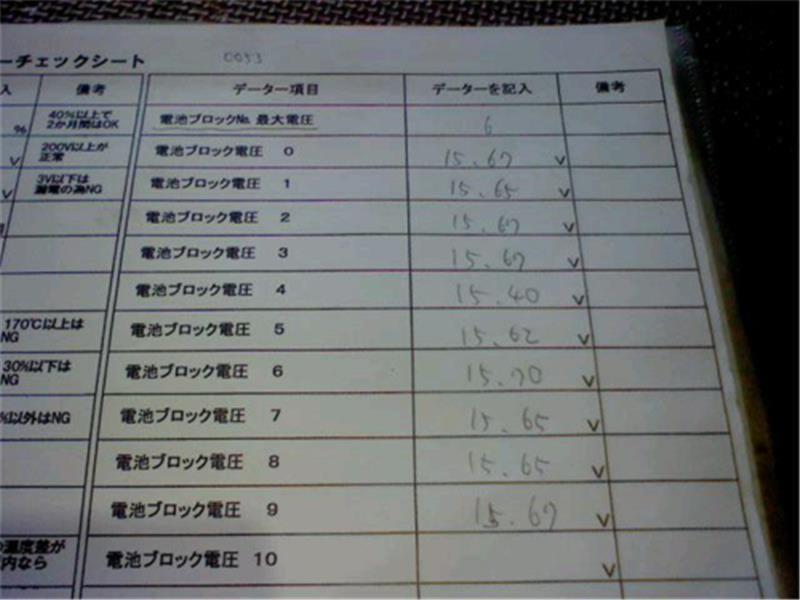 ーチェックシート 0053
入 備考 データー項目 データーを記入 備考
% 40%以上で 電池ブロック№ 最大電圧 6
2か月間はOK
V 200V以上が 電池ブロック電圧 0 15.67 V
正常
V 3V以下は 電池ブロック電圧 1 15.65 V
漏電の為NG
電池ブロック電圧 2 15.67 V
電池ブロック電圧 3 15.67 V
電池ブロック電圧 4 15.40 V
170℃以上は 電池ブロック電圧 5 15.62 V
NG
30%以下は 電池ブロック電圧 6 15.70 V
NG
%以外はNG 電池ブロック電圧 7 15.65 V
電池ブロック電圧 8 15.65 V
電池ブロック電圧 9 15.67 V
の温度差が 電池ブロック電圧 10 V
内なら